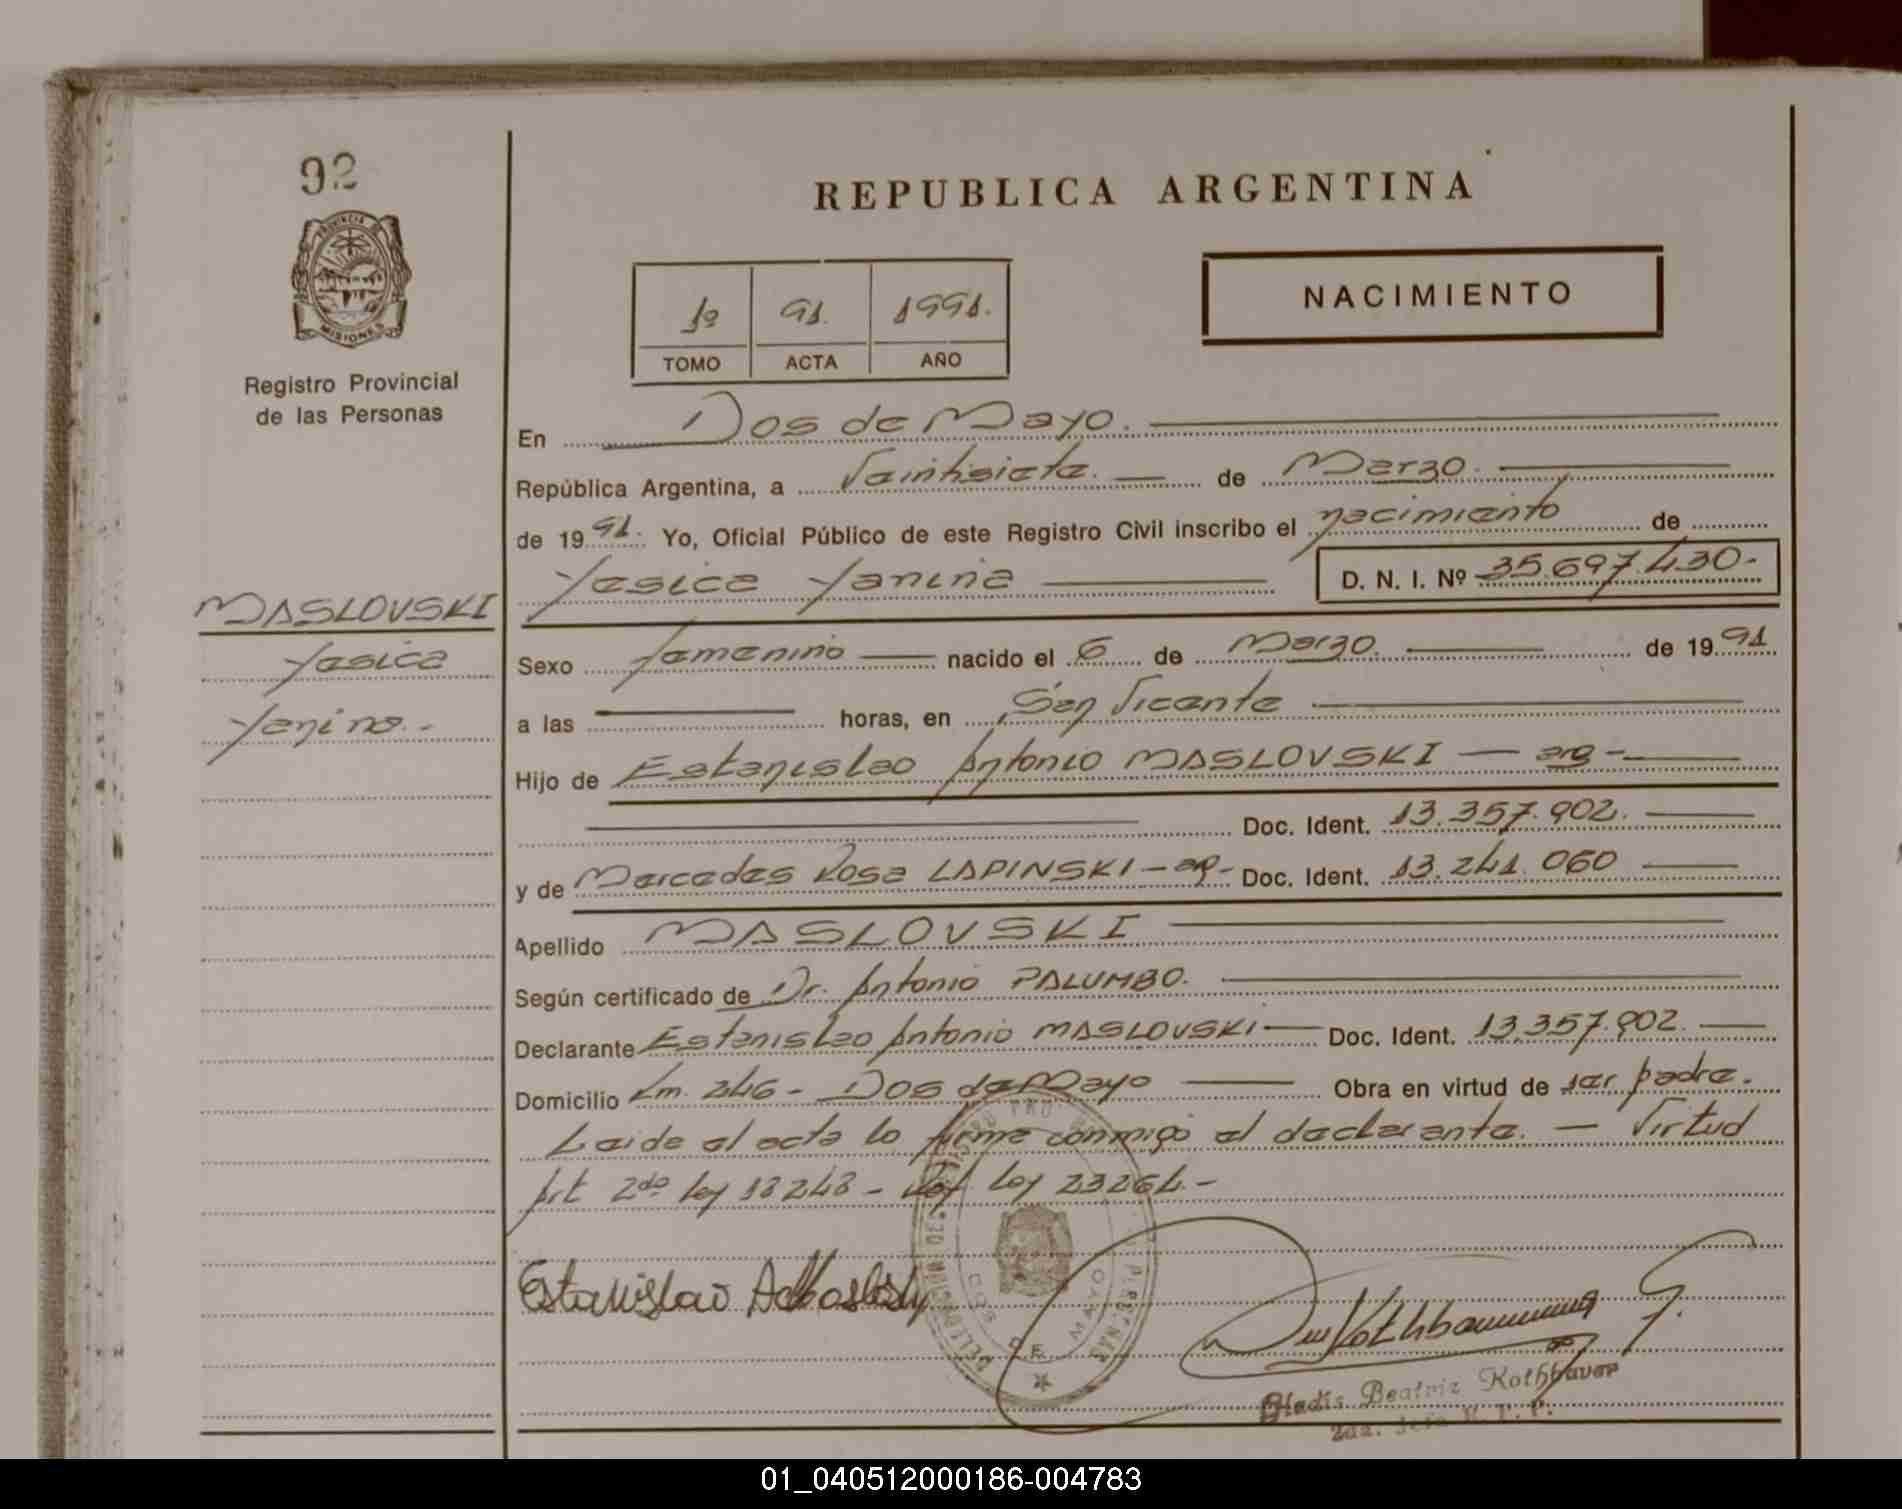 92
PROVINCIA DE
MISIONES
Registro Provincial
de las Personas
MASLOVSKI
Yesica
Yanina.-
REPUBLICA ARGENTINA
1º 91. 1991.
TOMO ACTA AÑO
NACIMIENTO
En Dos de Mayo.
República Argentina, a Veintisiete. de Marzo.
de 1991. Yo, Oficial Público de este Registro Civil inscribo el nacimiento de
Yesica Yanina D. N. I. Nº 35.697.430-
Sexo femenino nacido el 6 de Marzo. de 1991
a las horas, en San Vicente
Hijo de Estanislao Antonio MASLOVSKI - arg -
Doc. Ident. 13.357.902.
y de Mercedes Rosa LAPINSKI - arg - Doc. Ident. 13.241.060
Apellido MASLOVSKI
Según certificado de Dr. Antonio PALUMBO.
Declarante Estanislao Antonio MASLOVSKI Doc. Ident. 13.357.902.
Domicilio Km. 246 - Dos de Mayo Obra en virtud de ser padre.
Leida el acta la firma conmigo el declarante. - Virtud
Art 2do ley 18248 - ley 23264.-
Estanislao A
Gladis Beatriz Rothbauer
2da. Jefe R. P. P.
01_040512000186-004783